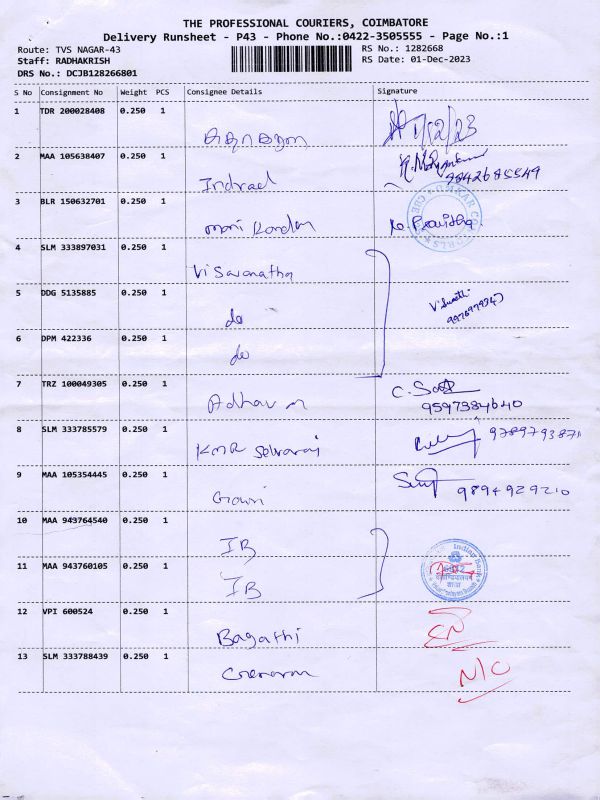 THE PROFESSIONAL COURIERS, COIMBATORE
Delivery Runsheet - P43 - Phone No.:0422-3505555 - Page No.:1
Route: TVS NAGAR-43
Staff: RADHAKRISH
DRS No.: DCJB128266801
RS No.: 1282668
RS Date: 01-Dec-2023
S No Consignment No Weight PCS Consignee Details Signature
1 TDR 200028408 0.250 1 1/12/23
2 MAA 105638407 0.250 1 Indrael
9842685549
3 BLR 150632701 0.250 1 mani Kandan
4 SLM 333897031 0.250 1 Viswanatha
5 DDG 5135885 0.250 1 do
6 DPM 422336 0.250 1 do
7 TRZ 100049305 0.250 1 Adhavan
9597384640
8 SLM 333785579 0.250 1 KMR Selvaraj
9 MAA 105354445 0.250 1 Gowri
9894929210
10 MAA 943764540 0.250 1 IB
11 MAA 943760105 0.250 1 IB
Indian Bank
12 VPI 600524 0.250 1 Bagathi
13 SLM 333788439 0.250 1 N/C